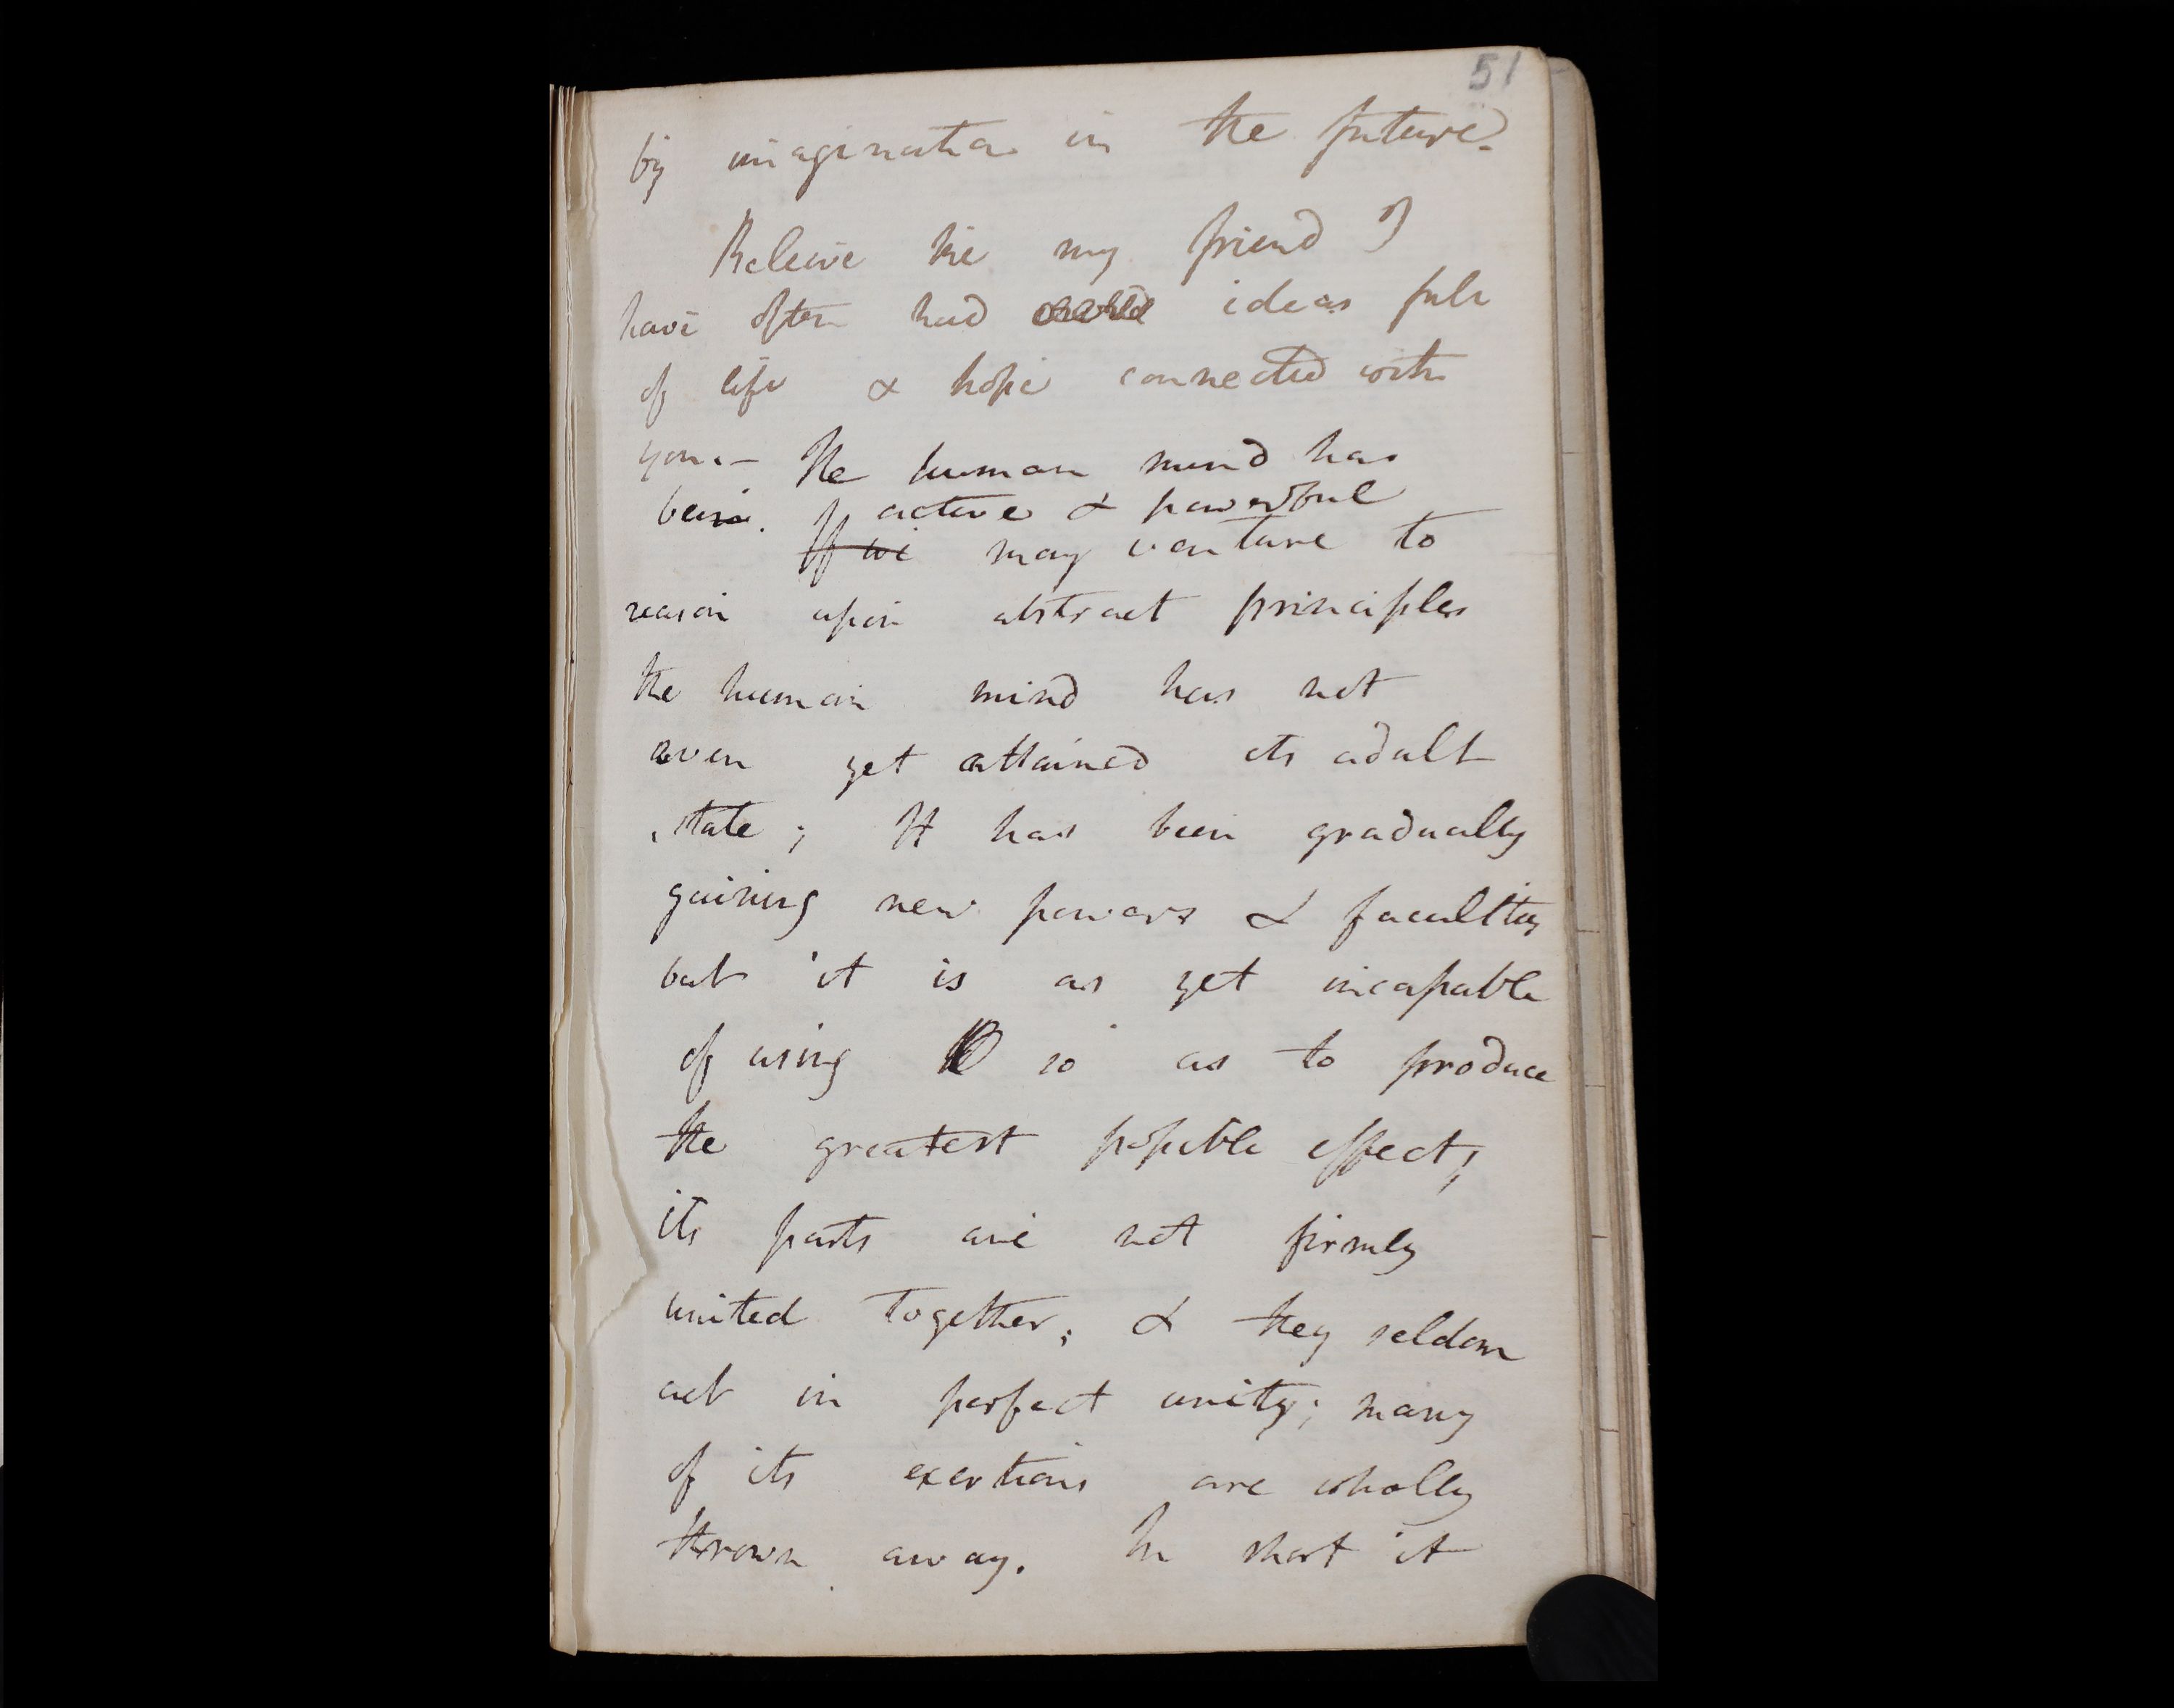 51
by imagination in the future.
Beleive me my friend I
have often had ideas full
of life & hope connected with
you. – The human mind has
been. active & powerful
If we may venture to
reason upon abstract principles
the human mind has not
even yet attained its adult
state; It has been gradually
gaining new powers & faculties
but it is as yet incapable
of using so as to produce
the greatest possible effect;
its parts are not firmly
united together; & they seldom
act in perfect unity; many
of its exertions are wholly
thrown away. In short it